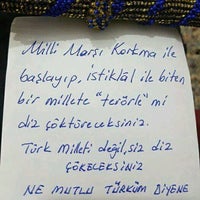 Milli Marşı Korkma ile
başlayıp, istiklâl ile biten
bir millete "terörle" mi
diz çöktüreceksiniz.
Türk milleti değil, siz diz
ÇÖKELEKSİNİZ
NE MUTLU TÜRKÜM DİYENE